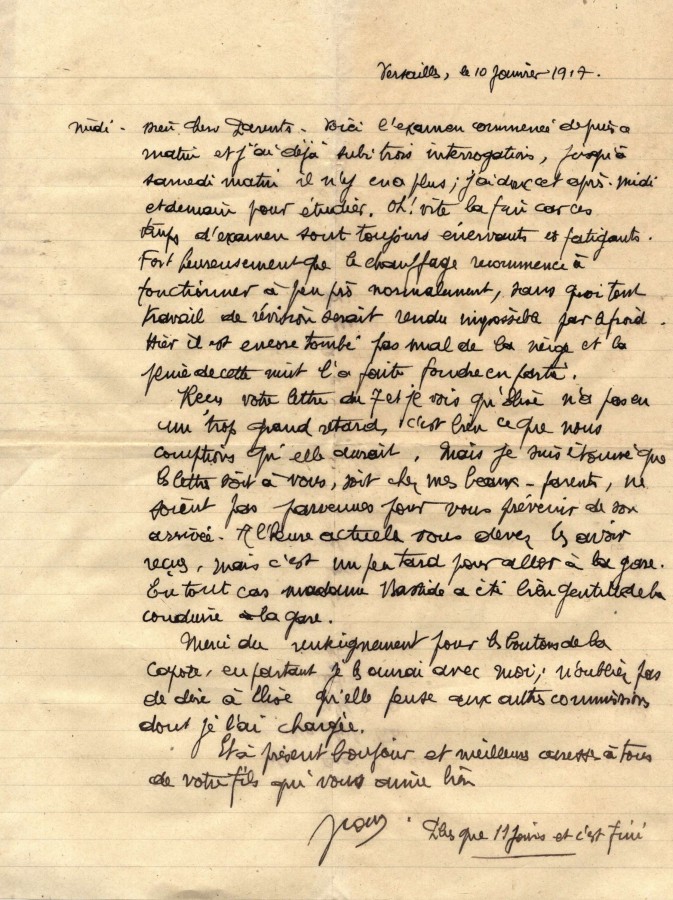 Versailles, le 10 Janvier 1917.
Midi - Mes chers Parents - Voici l'examen commencé depuis ce
matin et j'ai déjà subi trois interrogations, jusqu'à
samedi matin il n'y en a plus; j'ai donc cet après-midi
et demain pour étudier. Oh! vite la fin car ces
temps d'examen sont toujours énervants et fatigants.
Fort heureusement que le chauffage recommence à
fonctionner à peu près normalement, sans quoi tout
travail de révision serait rendu impossible par le froid.
Hier il est encore tombé pas mal de la neige et la
pluie de cette nuit l'a faite fondre en partie.
Reçu votre lettre du 7 et je vois qu'Elise n'a pas eu
un trop grand retard, c'est bien ce que nous
comptions qu'elle aurait. Mais je suis étonné que
les lettres soit à vous, soit chez mes beaux-parents, ne
soient pas parvenues pour vous prévenir de son
arrivée. A l'heure actuelle vous devez les avoir
reçues, mais c'est un peu tard pour aller à la gare.
En tout cas madame Bastide a été bien gentille de la
conduire à la gare.
Merci du renseignement pour les boutons de la
capote, en partant je les aurai avec moi; n'oubliez pas
de dire à Elise qu'elle pense aux autres commissions
dont je l'ai chargée.
Et à présent bonjour et meilleures caresses à tous
de votre fils qui vous aime bien
Jean. Plus que 11 jours et c'est fini